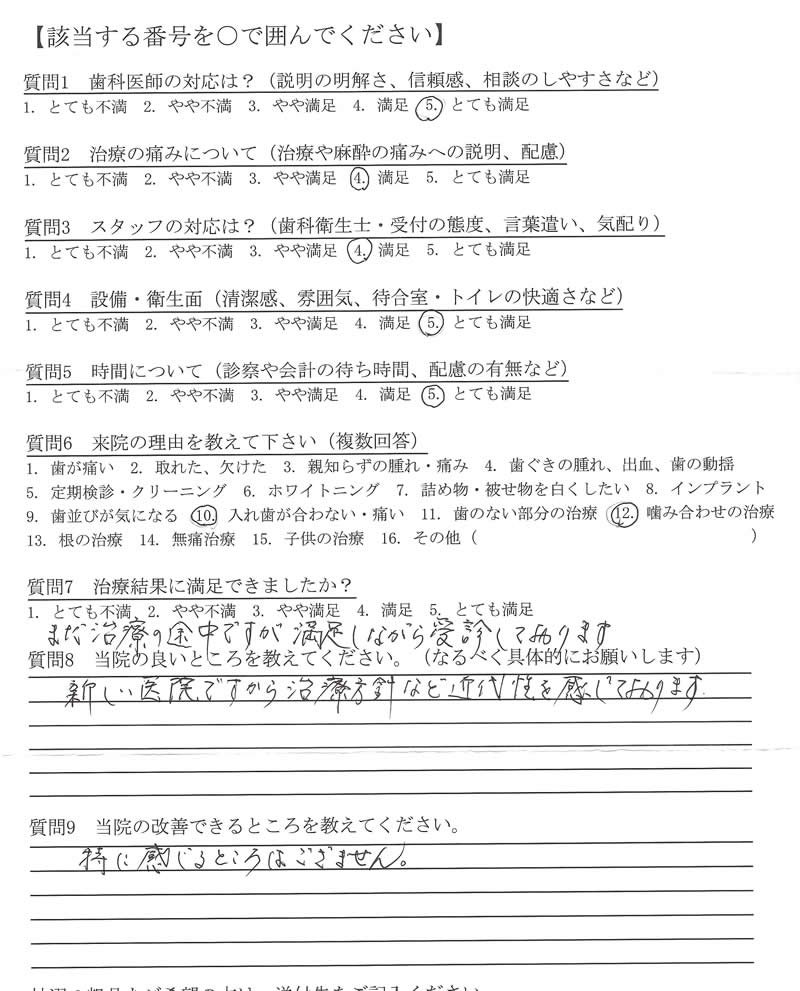 【該当する番号を〇で囲んでください】
質問1　歯科医師の対応は？（説明の明解さ、信頼感、相談のしやすさなど）
1. とても不満　2. やや不満　3. やや満足　4. 満足　5. とても満足
質問2　治療の痛みについて（治療や麻酔の痛みへの説明、配慮）
1. とても不満　2. やや不満　3. やや満足　4. 満足　5. とても満足
質問3　スタッフの対応は？（歯科衛生士・受付の態度、言葉遣い、気配り）
1. とても不満　2. やや不満　3. やや満足　4. 満足　5. とても満足
質問4　設備・衛生面（清潔感、雰囲気、待合室・トイレの快適さなど）
1. とても不満　2. やや不満　3. やや満足　4. 満足　5. とても満足
質問5　時間について（診察や会計の待ち時間、配慮の有無など）
1. とても不満　2. やや不満　3. やや満足　4. 満足　5. とても満足
質問6　来院の理由を教えて下さい（複数回答）
1. 歯が痛い　2. 取れた、欠けた　3. 親知らずの腫れ・痛み　4. 歯ぐきの腫れ、出血、歯の動揺
5. 定期検診・クリーニング　6. ホワイトニング　7. 詰め物・被せ物を白くしたい　8. インプラント
9. 歯並びが気になる　10. 入れ歯が合わない・痛い　11. 歯のない部分の治療　12. 噛み合わせの治療
13. 根の治療　14. 無痛治療　15. 子供の治療　16. その他（　　　　　　　　　　　　）
質問7　治療結果に満足できましたか？
1. とても不満　2. やや不満　3. やや満足　4. 満足　5. とても満足
まだ治療の途中ですが満足しながら受診しております
質問8　当院の良いところを教えてください。（なるべく具体的にお願いします）
新しい医院ですから治療方針など近代性を感じております.
質問9　当院の改善できるところを教えてください。
特に感じるところはございません。